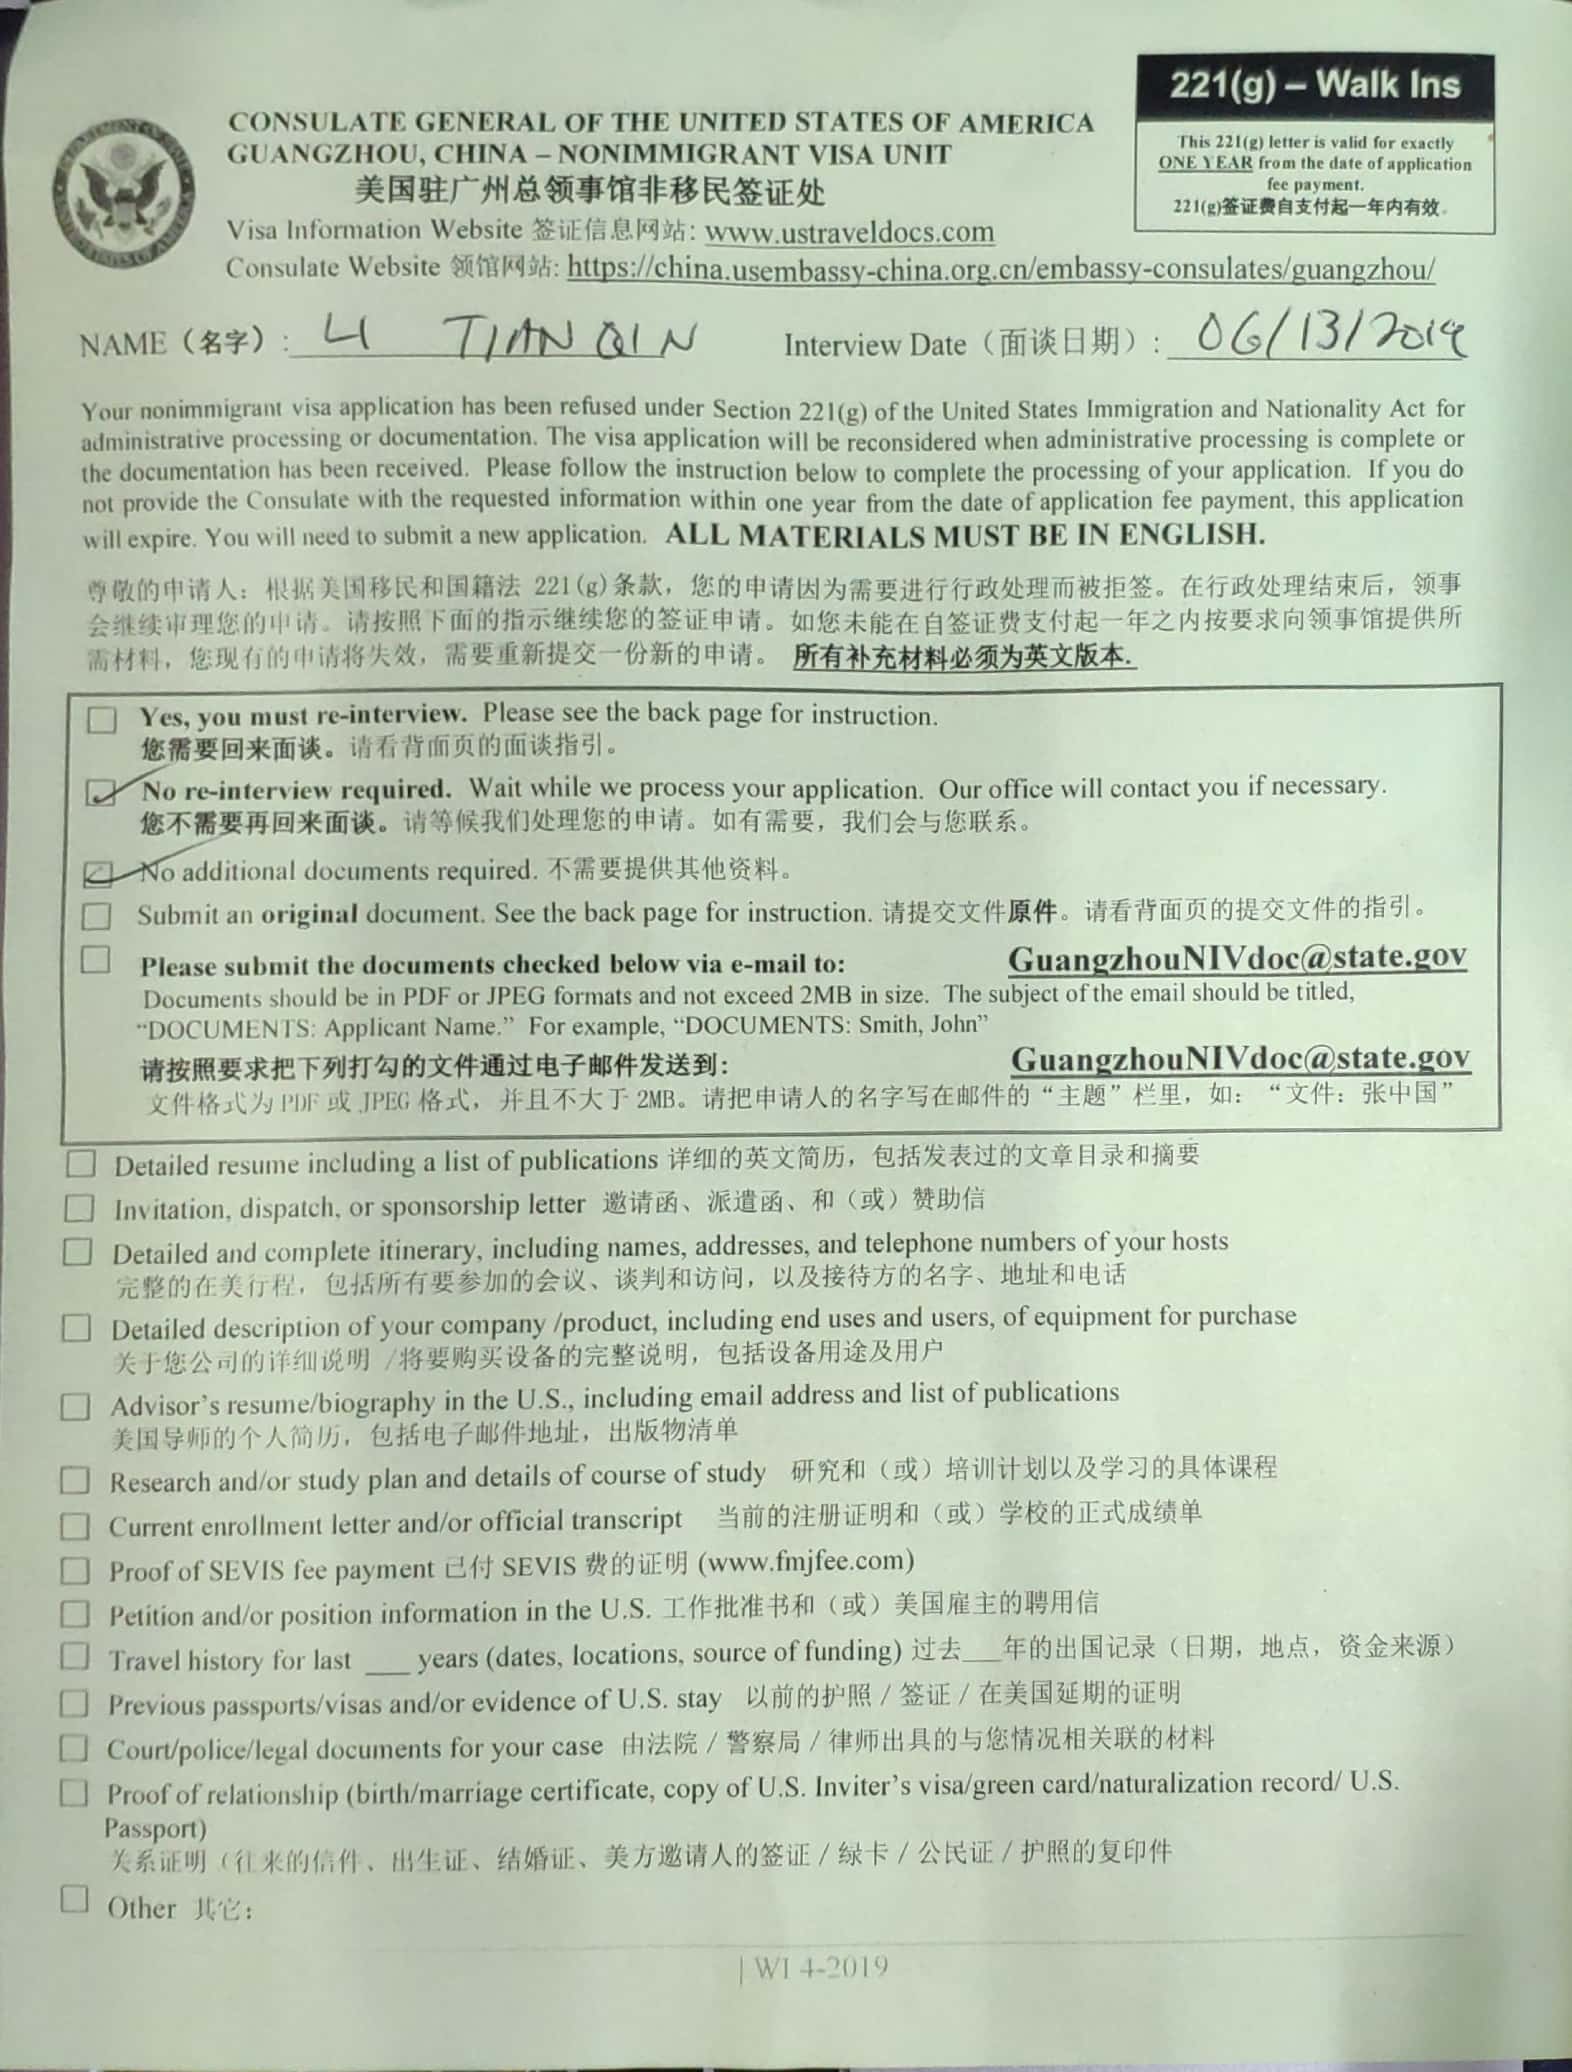 221(g) – Walk Ins
This 221(g) letter is valid for exactly
ONE YEAR from the date of application
fee payment.
221(g)签证费自支付起一年内有效。
CONSULATE GENERAL OF THE UNITED STATES OF AMERICA
GUANGZHOU, CHINA – NONIMMIGRANT VISA UNIT
美国驻广州总领事馆非移民签证处
Visa Information Website 签证信息网站: www.ustraveldocs.com
Consulate Website 领馆网站: https://china.usembassy-china.org.cn/embassy-consulates/guangzhou/
NAME（名字）: LI TIANQIN Interview Date（面谈日期）: 06/13/2019
Your nonimmigrant visa application has been refused under Section 221(g) of the United States Immigration and Nationality Act for
administrative processing or documentation. The visa application will be reconsidered when administrative processing is complete or
the documentation has been received. Please follow the instruction below to complete the processing of your application. If you do
not provide the Consulate with the requested information within one year from the date of application fee payment, this application
will expire. You will need to submit a new application. ALL MATERIALS MUST BE IN ENGLISH.
尊敬的申请人：根据美国移民和国籍法 221(g)条款，您的申请因为需要进行行政处理而被拒签。在行政处理结束后，领事
会继续审理您的申请。请按照下面的指示继续您的签证申请。如您未能在自签证费支付起一年之内按要求向领事馆提供所
需材料，您现有的申请将失效，需要重新提交一份新的申请。 所有补充材料必须为英文版本.
Yes, you must re-interview. Please see the back page for instruction.
您需要回来面谈。请看背面页的面谈指引。
No re-interview required. Wait while we process your application. Our office will contact you if necessary.
您不需要再回来面谈。请等候我们处理您的申请。如有需要，我们会与您联系。
No additional documents required. 不需要提供其他资料。
Submit an original document. See the back page for instruction. 请提交文件原件。请看背面页的提交文件的指引。
Please submit the documents checked below via e-mail to: GuangzhouNIVdoc@state.gov
Documents should be in PDF or JPEG formats and not exceed 2MB in size. The subject of the email should be titled,
“DOCUMENTS: Applicant Name.” For example, “DOCUMENTS: Smith, John”
请按照要求把下列打勾的文件通过电子邮件发送到: GuangzhouNIVdoc@state.gov
文件格式为 PDF 或 JPEG 格式，并且不大于 2MB。请把申请人的名字写在邮件的“主题”栏里，如：“文件：张中国”
Detailed resume including a list of publications 详细的英文简历，包括发表过的文章目录和摘要
Invitation, dispatch, or sponsorship letter 邀请函、派遣函、和（或）赞助信
Detailed and complete itinerary, including names, addresses, and telephone numbers of your hosts
完整的在美行程，包括所有要参加的会议、谈判和访问，以及接待方的名字、地址和电话
Detailed description of your company /product, including end uses and users, of equipment for purchase
关于您公司的详细说明 /将要购买设备的完整说明，包括设备用途及用户
Advisor’s resume/biography in the U.S., including email address and list of publications
美国导师的个人简历，包括电子邮件地址，出版物清单
Research and/or study plan and details of course of study 研究和（或）培训计划以及学习的具体课程
Current enrollment letter and/or official transcript 当前的注册证明和（或）学校的正式成绩单
Proof of SEVIS fee payment 已付 SEVIS 费的证明 (www.fmjfee.com)
Petition and/or position information in the U.S. 工作批准书和（或）美国雇主的聘用信
Travel history for last ___ years (dates, locations, source of funding) 过去___年的出国记录（日期，地点，资金来源）
Previous passports/visas and/or evidence of U.S. stay 以前的护照 / 签证 / 在美国延期的证明
Court/police/legal documents for your case 由法院 / 警察局 / 律师出具的与您情况相关联的材料
Proof of relationship (birth/marriage certificate, copy of U.S. Inviter’s visa/green card/naturalization record/ U.S.
Passport)
关系证明（往来的信件、出生证、结婚证、美方邀请人的签证 / 绿卡 / 公民证 / 护照的复印件
Other 其它:
| WI 4-2019